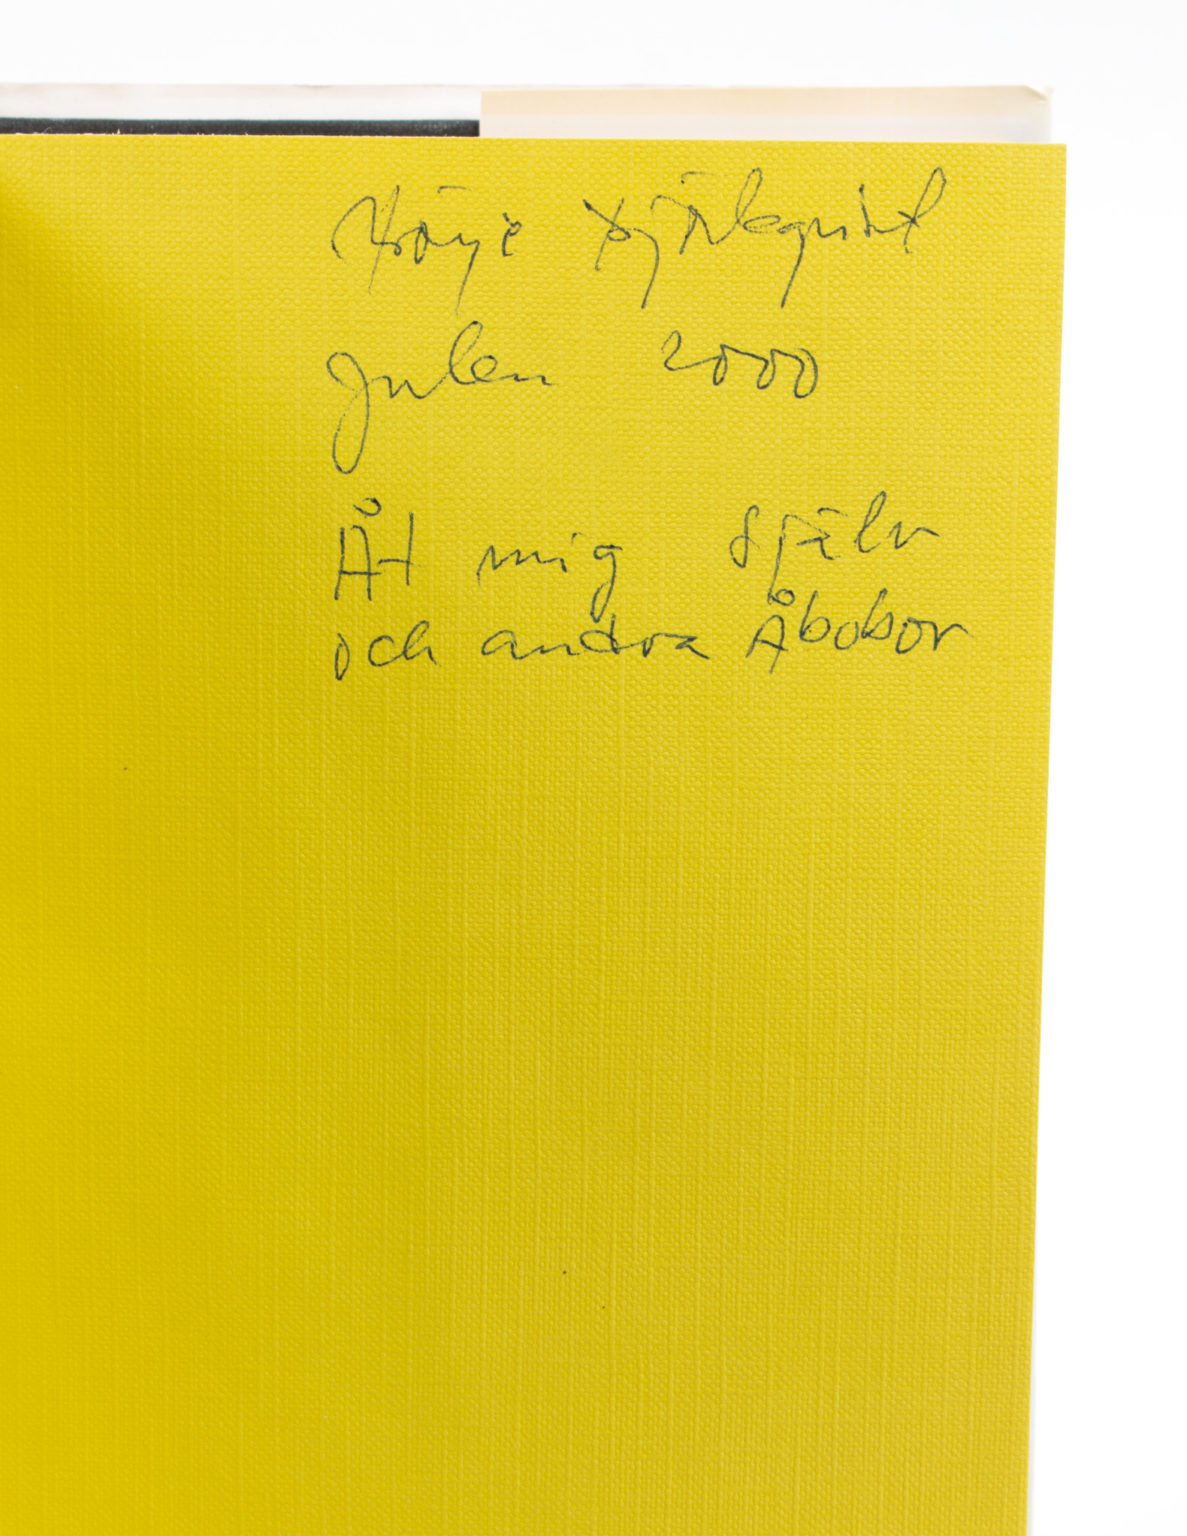 Börje Björkqvist
Julen 2000
Åt mig själv
och andra Åbobor